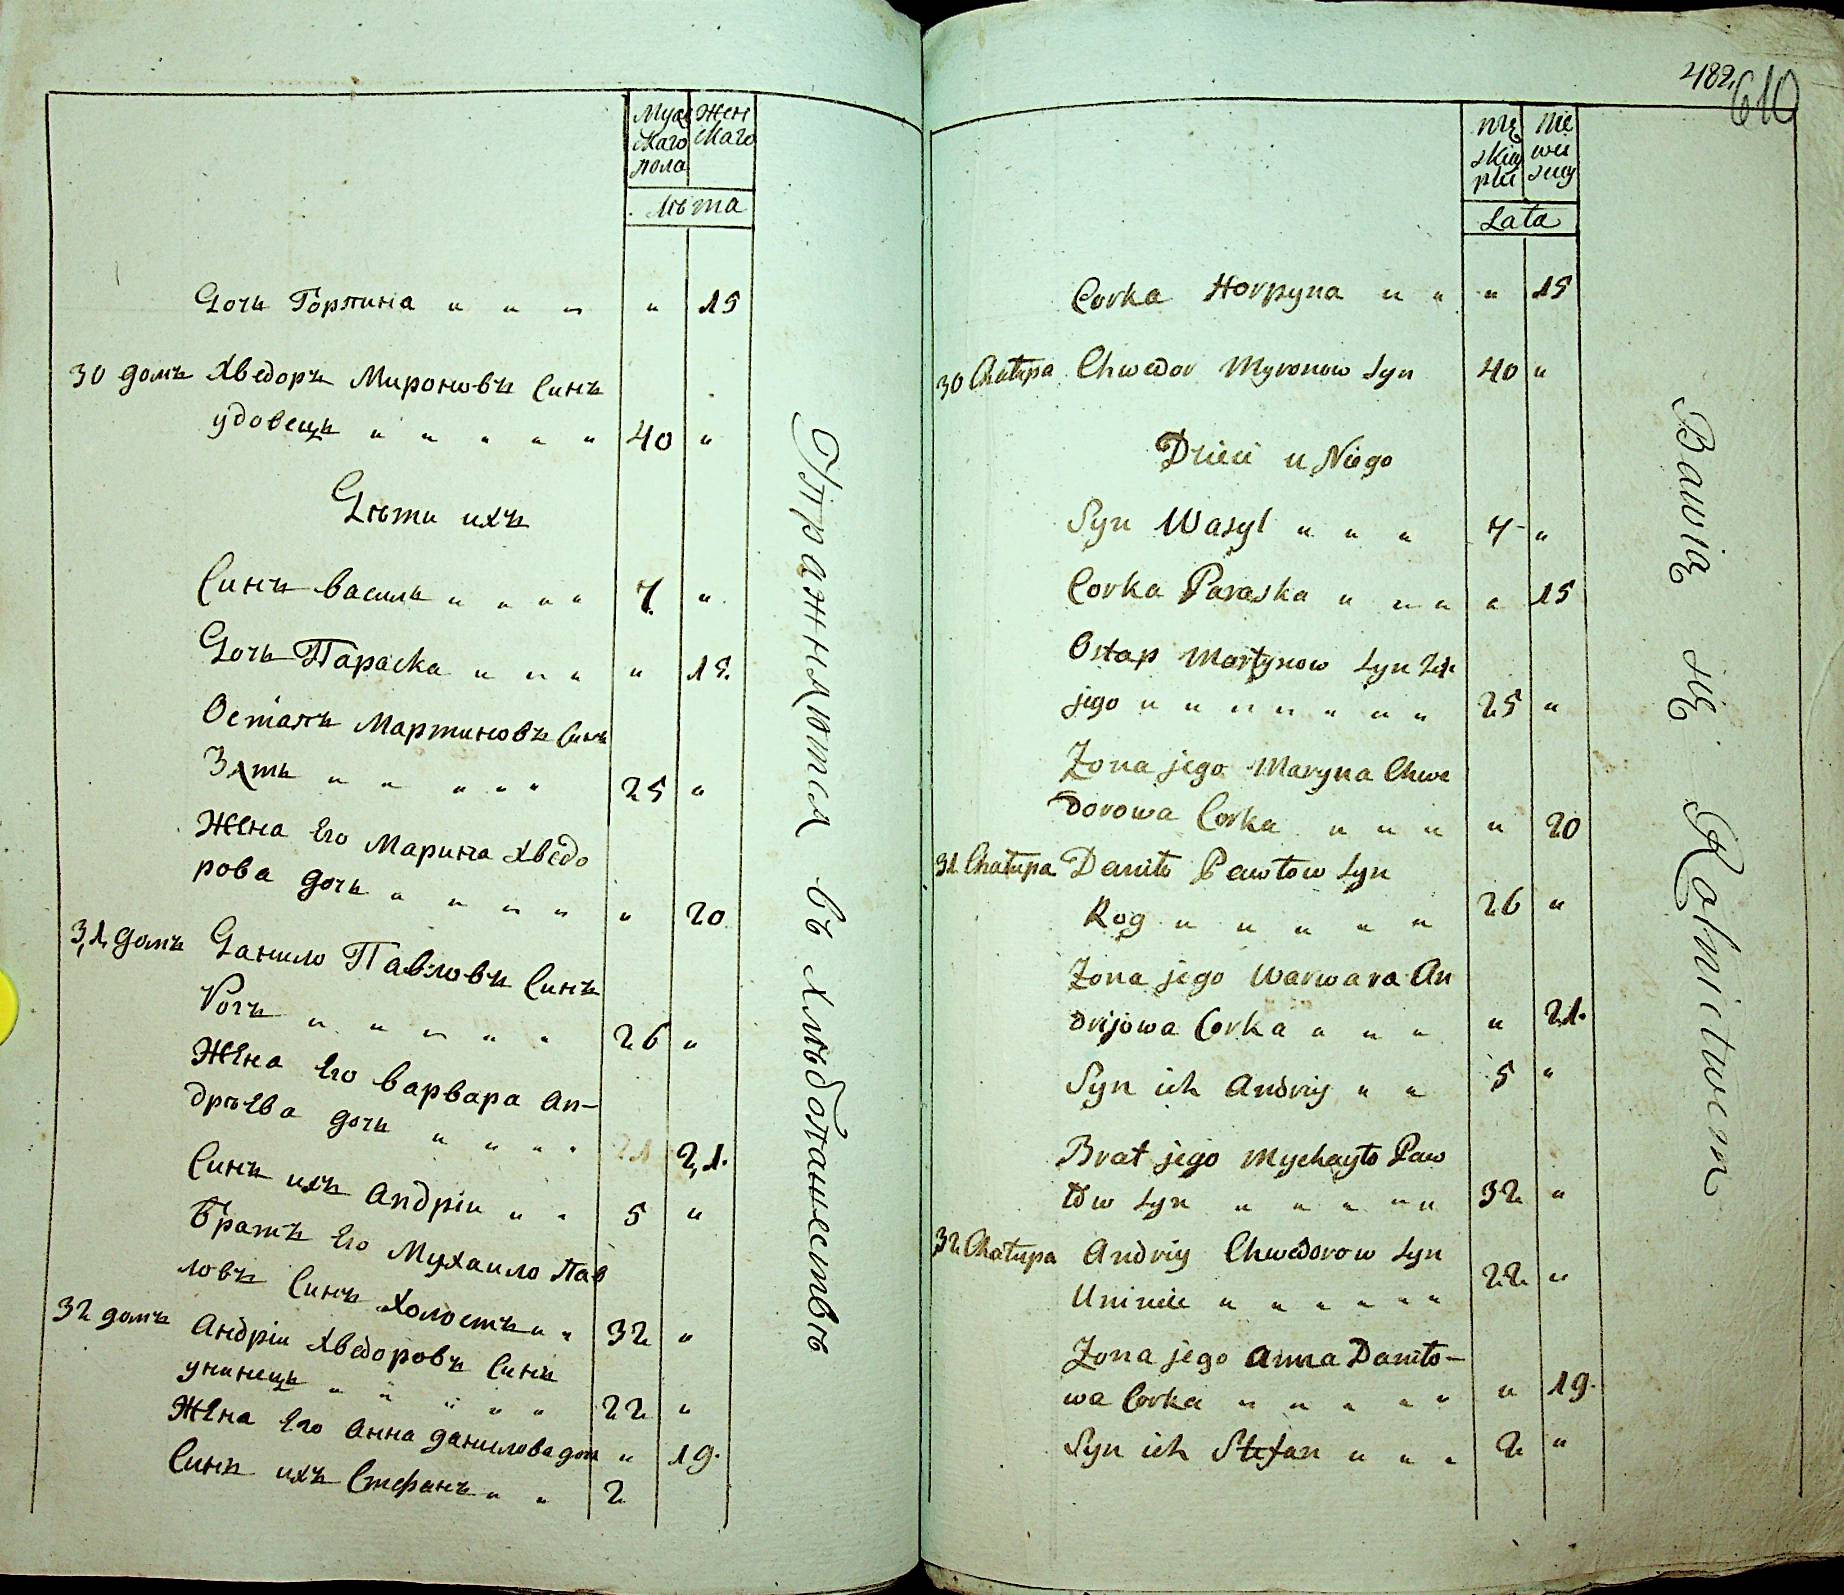 Мужескаго пола Женскаго
лѣта
Дочь Горпина " " " " 15
30 домъ Хведоръ Мироновъ Синъ
удовецъ " " " " " 40 "
Дѣти ихъ
Синъ Василь " " " " 7 "
Дочь Параска " " " " 15.
Остапъ Мартиновъ Синъ
Зять " " " " " 25 "
Жена Его Марина Хведо
рова дочь " " " " " 20
31 домъ Данило Павловъ Синъ
Рогъ " " " " " 26 "
Жена Его Варвара Ан-
дрѣева дочь " " " " 21.
Синъ ихъ Андрій " " 5 "
Братъ Его Мухаило Пав
ловъ Синъ Холостъ " " 32 "
32 домъ Андрій Хведоровъ Синъ
унинецъ " " " " " 22 "
Жена Его Анна данилова доч " 19.
Синъ ихъ Стефанъ " " 2
Упражняются въ хлѣбопашествѣ
482. 610
męskiey płci niewesciey
Lata
Corka Horpyna " " " 15
30 Chałupa Chwedor Myronow Syn 40 "
Dzieci u Niego
Syn Wasyl " " " 7 "
Corka Paraska " " " " 15
Ostap Martynow Syn Zt
jego " " " " " " " 25 "
Zona jego Maryna Chwe
dorowa Corka " " " " 20
31 Chałupa Daniło Pawłow Syn
Rog " " " " " 26 "
Zona jego Warwara An
drijowa Corka " " " " 21.
Syn ich Andriy " " 5 "
Brat jego Mychayło Paw
łow Syn " " " " " 32 "
32 Chałupa Andriy Chwedorow Syn
Uniniec " " " " " " 22 "
Zona jego Anna Daniło-
wa Corka " " " " " " 19.
Syn ich Stefan " " " 2 "
Bawią się Rolnictwem